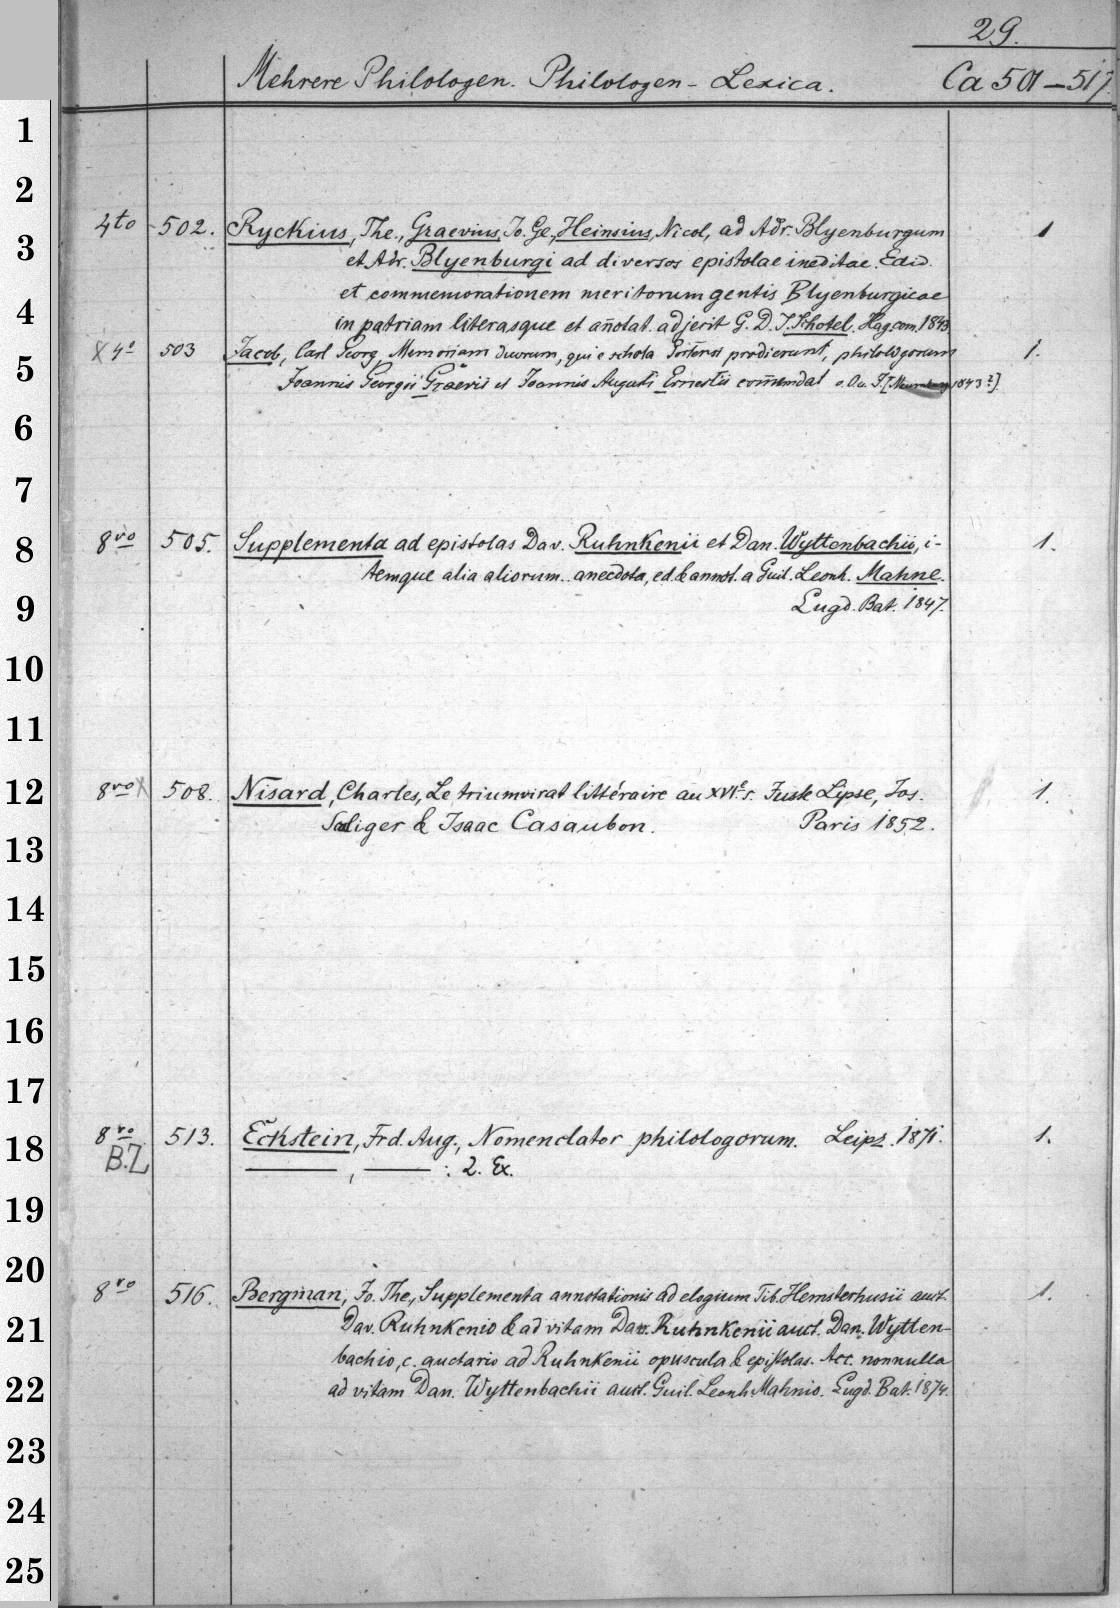 29.
Mehrere Philologen. Philologen-Lexica. Ca 501-517.
1
2
4to 502. Ryckius, The., Graevius, Jo. Ge., Heinsius, Nicol., ad Adr. Blyenburgum 1
3
et Adr. Blyenburgi ad diversos epistolae ineditae. Edid.
et commemorationem meritorum gentis Blyenburgicae
4
in patriam literasque et añotat. adjecit G. D. J. Schotel. Hag. com. 1843
X 4° 503 Jacob, Carl Georg, Memoriam duorum, qui e schola Portensi prodierunt, philologorum 1.
5
Joannis Georgii Graevii et Joannis Augusti Ernestii com̄endat o. O u. J. [ 1843?]
6
7
8vo 505. Supplementa ad epistolas Dav. Ruhnkenii et Dan. Wyttenbachii, i- 1.
8
temque alia aliorum anecdota, ed. & annot. a Guil. Leonh. Mahne.
9
Lugd. Bat. 1847.
10
11
8vo X 508. Nisard, Charles, Le triumvirat littéraire au XVIe s. Juste Lipse, Jos. 1.
12
Scaliger & Isaac Casaubon. Paris 1852.
13
14
15
16
17
8vo 513. Eckstein, Frd. Aug., Nomenclator philologorum. Leipz. 1871. 1.
18
B.Z ——— , ——— : 2. Ex.
19
20
8vo 516. Bergman, Jo. The., Supplementa annotationis ad elogium Tib. Hemsterhusii auct. 1.
21
Dav. Ruhnkenio & ad vitam Dav. Ruhnkenii auct. Dan. Wytten-
bachio, c. auctario ad Ruhnkenii opuscula & epistolas. Acc. nonnulla
22
ad vitam Dan. Wyttenbachii auct. Guil. Leonh. Mahnio. Lugd. Bat. 1874.
23
24
25